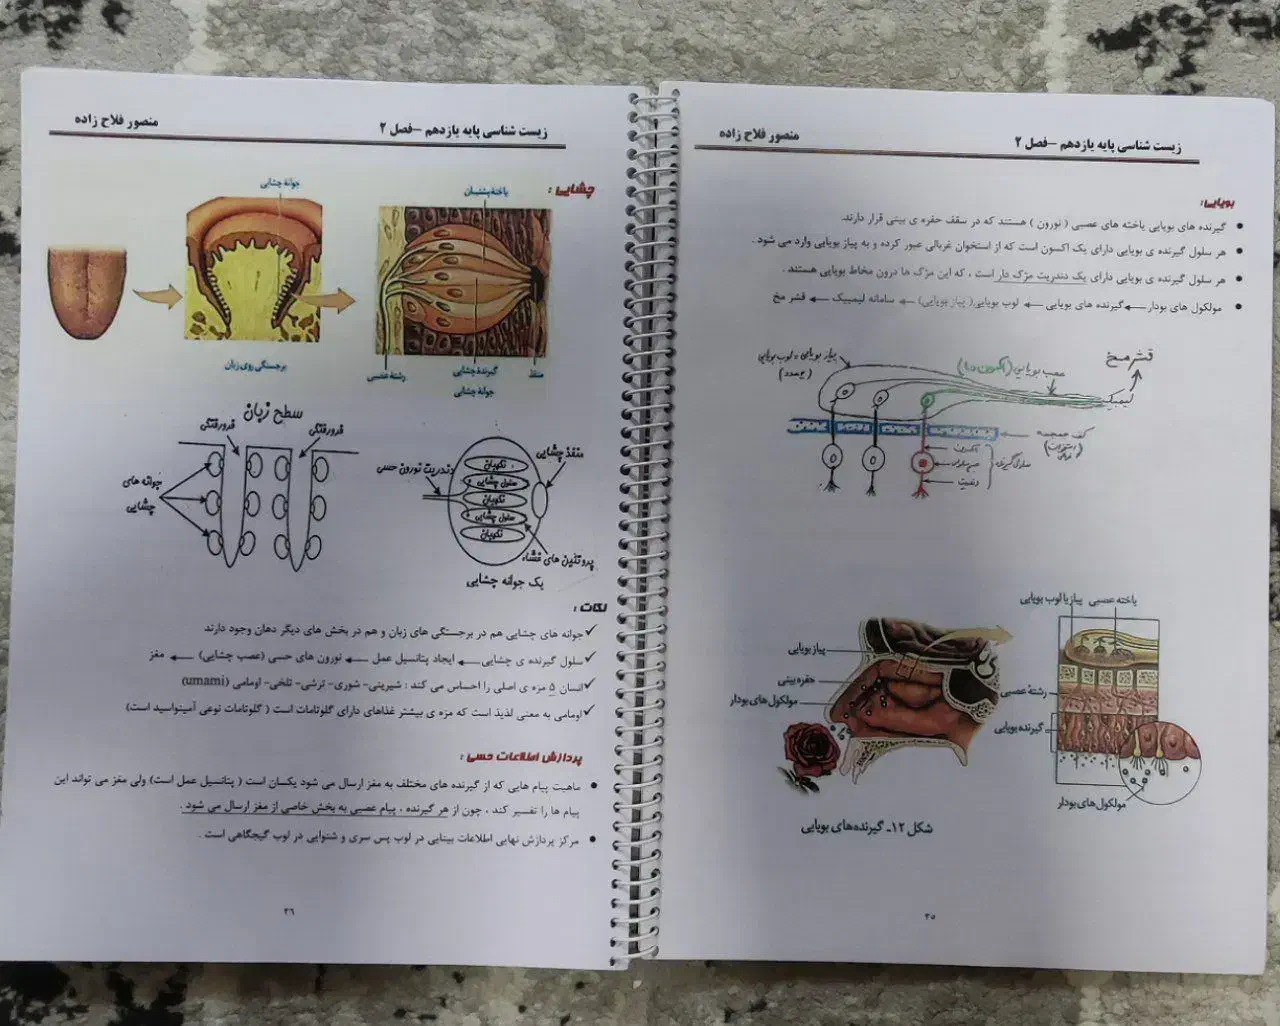 زیست شناسی پایه یازدهم –فصل ۲
منصور فلاح زاده
بویایی:
گیرنده های بویایی یاخته های عصبی ( نورون ) هستند که در سقف حفره ی بینی قرار دارند.
هر سلول گیرنده ی بویایی دارای یک اکسون است که از استخوان غربالی عبور کرده و به پیاز بویایی وارد می شود .
هر سلول گیرنده ی بویایی دارای یک دندریت مژک دار است ، که این مژک ها درون مخاط بویایی هستند .
مولکول های بودار ← گیرنده های بویایی ← لوب بویایی( پیاز بویایی) ← سامانه لیمبیک ← قشر مخ
پیاز بویایی = لوب بویایی
(۲عدد)
عصب بویایی
قشر مخ
لیمبیک
کف جمجمه
اکسون
دندریت
یاخته عصبی
پیاز یا لوب بویایی
پیاز بویایی
حفره بینی
مولکول های بودار
رشتهٔ عصبی
گیرنده بویایی
مولکول های بودار
شکل ۱۲ـ گیرنده‌های بویایی
۳۵
زیست شناسی پایه یازدهم –فصل ۲
منصور فلاح زاده
چشایی :
جوانهٔ چشایی
یاختهٔ پشتیبان
برجستگی روی زبان
رشتهٔ عصبی
گیرندهٔ چشایی
منفذ
جوانهٔ چشایی
سطح زبان
فرورفتگی
فرورفتگی
جوانه های
چشایی
دندریت نورون حسی
منفذ چشایی
نگهبان
سلول چشایی
نگهبان
سلول چشایی
نگهبان
پروتئین های غشاء
یک جوانه چشایی
نکات :
جوانه های چشایی هم در برجستگی های زبان و هم در بخش های دیگر دهان وجود دارند
سلول گیرنده ی چشایی ← ایجاد پتانسیل عمل ← نورون های حسی (عصب چشایی) ← مغز
انسان ۵ مزه ی اصلی را احساس می کند : شیرینی- شوری- ترشی- تلخی- اومامی (umami)
اومامی به معنی لذیذ است که مزه ی بیشتر غذاهای دارای گلوتامات است ( گلوتامات نوعی آمینواسید است)
پردازش اطلاعات حسی :
ماهیت پیام هایی که از گیرنده های مختلف به مغز ارسال می شود یکسان است ( پتانسیل عمل است) ولی مغز می تواند این
پیام ها را تفسیر کند ، چون از هر گیرنده ، پیام عصبی به بخش خاصی از مغز ارسال می شود .
مرکز پردازش نهایی اطلاعات بینایی در لوب پس سری و شنوایی در لوب گیجگاهی است .
۳۶